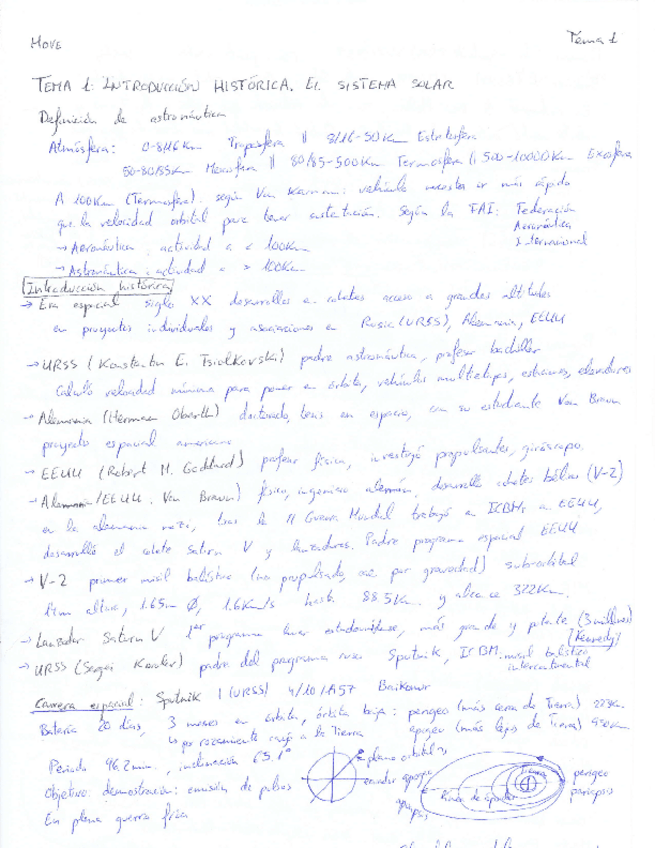 MOVE
Tema 1
TEMA 1: INTRODUCCIÓN HISTÓRICA. EL SISTEMA SOLAR
Definición de astronáutica
Atmósfera: 0-8/16 Km Troposfera || 8/16-50 Km Estratosfera
50-80/85 Km Mesosfera || 80/85-500 Km Termosfera || 500-10000 Km Exosfera
A 100 Km (Termosfera) según Von Karman: vehículo necesita ir más rápido
que la velocidad orbital para tener sustentación. Según la FAI: Federación
Aeronáutica
Internacional
→ Aeronáutica: actividad a < 100 Km
→ Astronáutica: actividad a > 100 Km
Introducción histórica
→ Era espacial siglo XX desarrollos en cohetes acceso a grandes altitudes
en proyectos individuales y asociaciones en Rusia (URSS), Alemania, EEUU
→ URSS (Konstantin E. Tsiolkovski) padre astronáutica, profesor bachiller
Calculó velocidad mínima para poner en órbita, vehículos multietapas, estaciones, elevadores
→ Alemania (Herman Oberth) doctorado, tesis en espacio, con su estudiante Von Braun
proyecto espacial americano
→ EEUU (Robert H. Goddard) profesor física, investigó propulsantes, giróscopo.
→ Alemania/EEUU. Von Braun) físico, ingeniero alemán, desarrolló cohetes bélicos (V-2)
en la alemania nazi, tras la II Guerra Mundial trabajó en ICBMs en EEUU,
desarrolló el cohete Saturn V y lanzadores. Padre programa espacial EEUU
→ V-2 primer misil balístico (no propulsado, cae por gravedad) suborbital
14m altura, 1.65m Ø, 1.6 Km/s hasta 88.5 Km y alcance 322 Km.
→ Lanzador Saturn V 1er programa lunar estadounidense, más grande y potente (3 millones)
(Kennedy)
→ URSS (Sergei Korolev) padre del programa ruso Sputnik, ICBM: misil balístico
intercontinental
Carrera espacial: Sputnik 1 (URSS) 4/10/1957 Baikonur
Batería 20 días, 3 meses en órbita, órbita baja: perigeo (más cerca de Tierra) 223 Km.
↳ por rozamiento cayó a la Tierra apogeo (más lejos de Tierra) 950 Km
Periodo 96.2 min, inclinación 65.1°
plano orbital
ecuador
apogeo
Tierra
perigeo
periapsis
Línea de ápsides
Objetivo: demostración: emisión de pulsos
En plena guerra fría